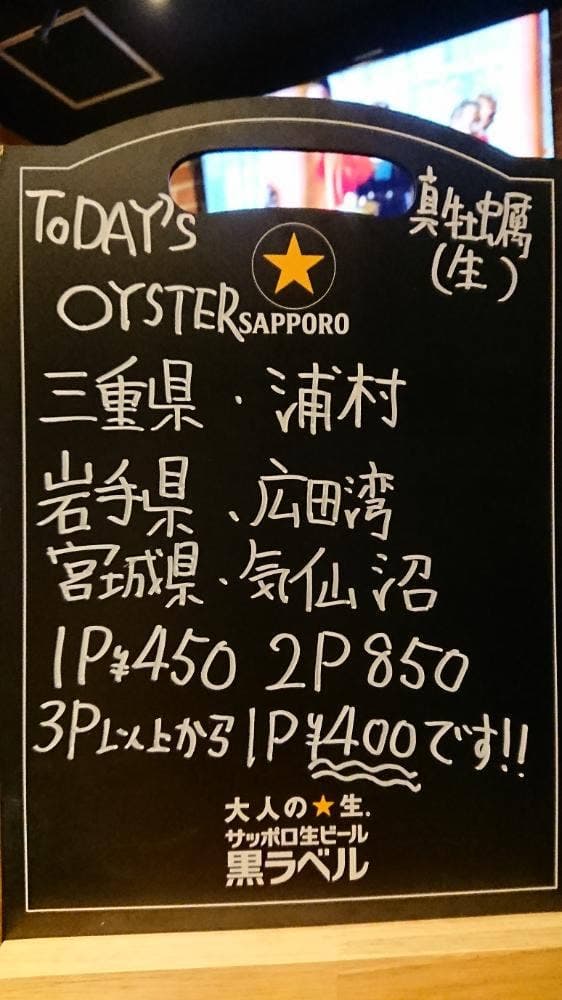 TODAY'S
真牡蠣
(生)
OYSTER
SAPPORO
三重県・浦村
岩手県、広田湾
宮城県・気仙沼
1P¥450 2P 850
3P以上から1P¥400です!!
大人の★生.
サッポロ生ビール
黒ラベル